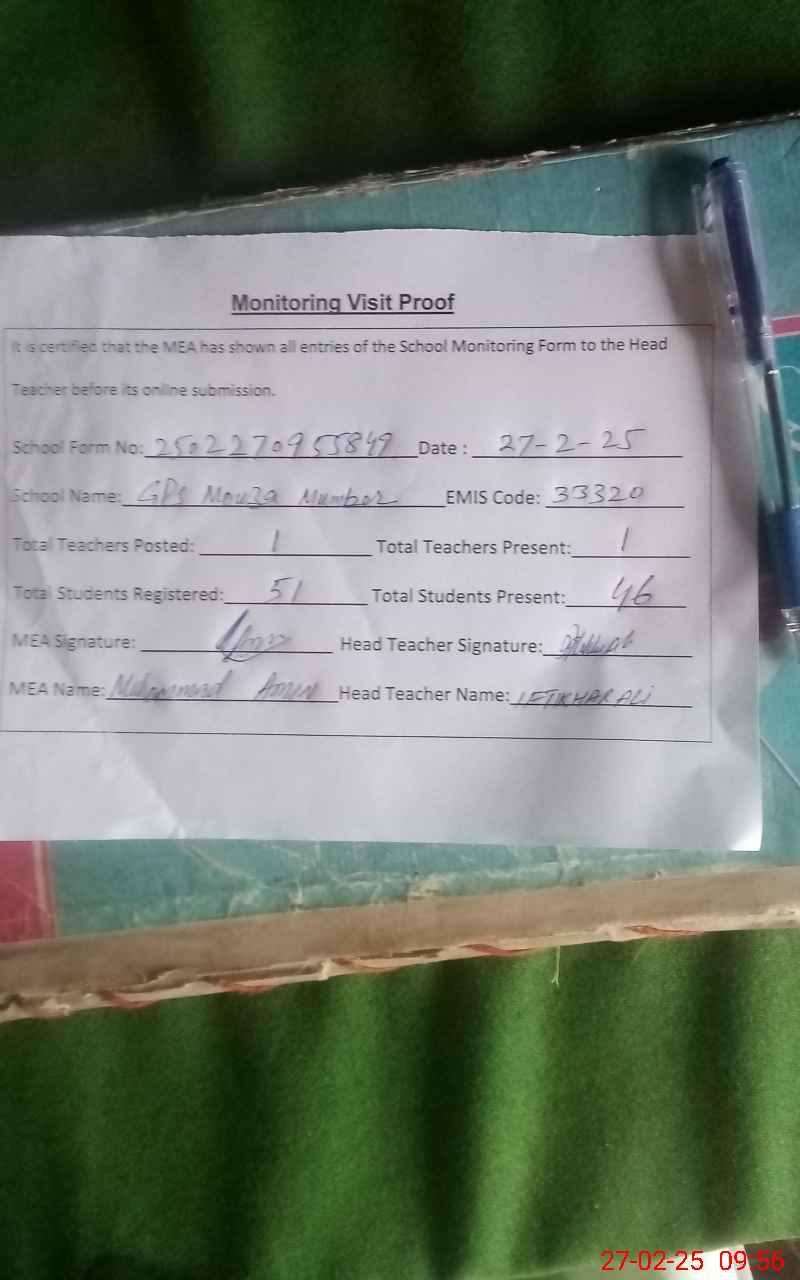 Monitoring Visit Proof
It is certified that the MEA has shown all entries of the School Monitoring Form to the Head
Teacher before its online submission.
School Form No: 2502270955849 Date : 27-2-25
School Name: GPS Mouza Mumbar EMIS Code: 33320
Total Teachers Posted: 1 Total Teachers Present: 1
Total Students Registered: 51 Total Students Present: 46
MEA Signature: Head Teacher Signature:
MEA Name: Muhammad Amin Head Teacher Name: IFTIKHAR ALI
27-02-25 09:56